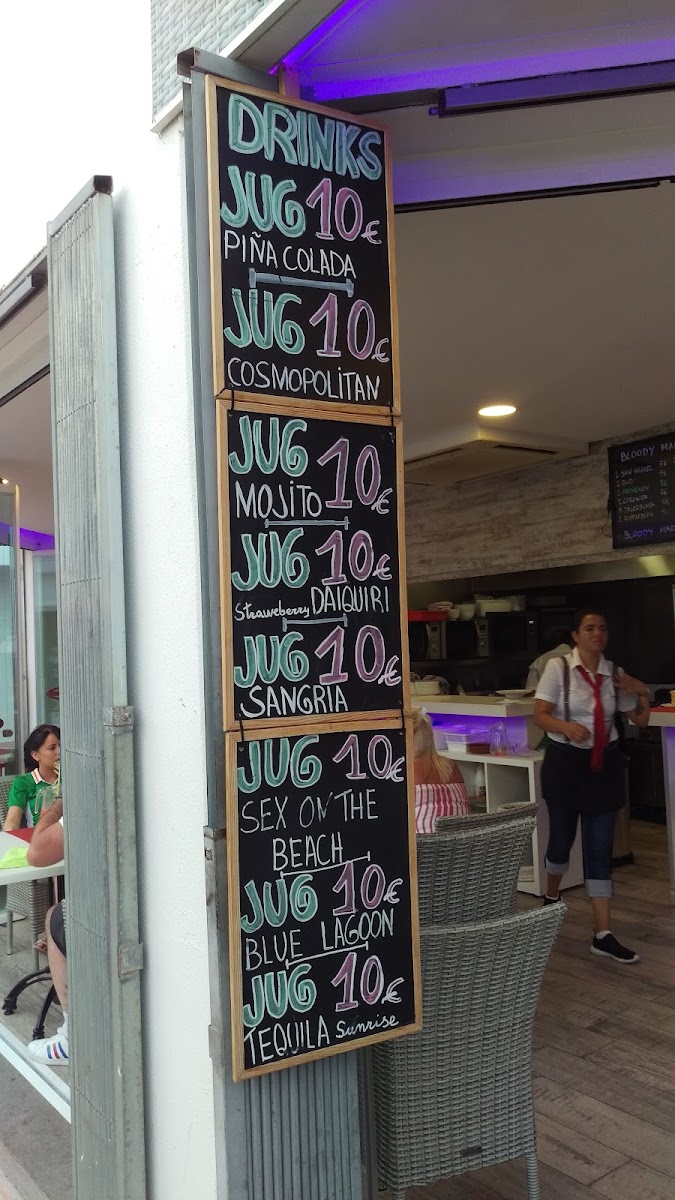 DRINKS
JUG 10€
PIÑA COLADA
JUG 10€
COSMOPOLITAN
JUG 10€
MOJITO
JUG 10€
Straweberry DAIQUIRI
JUG 10€
SANGRIA
JUG 10€
SEX ON THE
BEACH
JUG 10€
BLUE LAGOON
JUG 10€
TEQUILA Sunrise
BLOODY MAR
SAN MIGUEL
BUD
HEINEKEN
CORONITA
BLOODY MAR